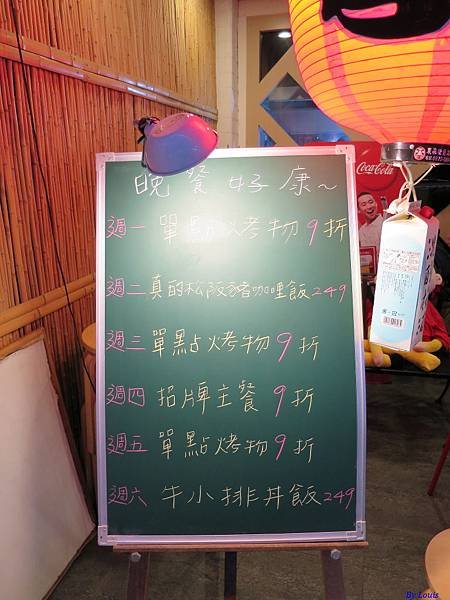 晚餐好康~
週一 單點烤物9折
週二 真的松阪豬咖哩飯249
週三 單點烤物9折
週四 招牌主餐9折
週五 單點烤物9折
週六 牛小排丼飯249
Coca-Cola
By Louis